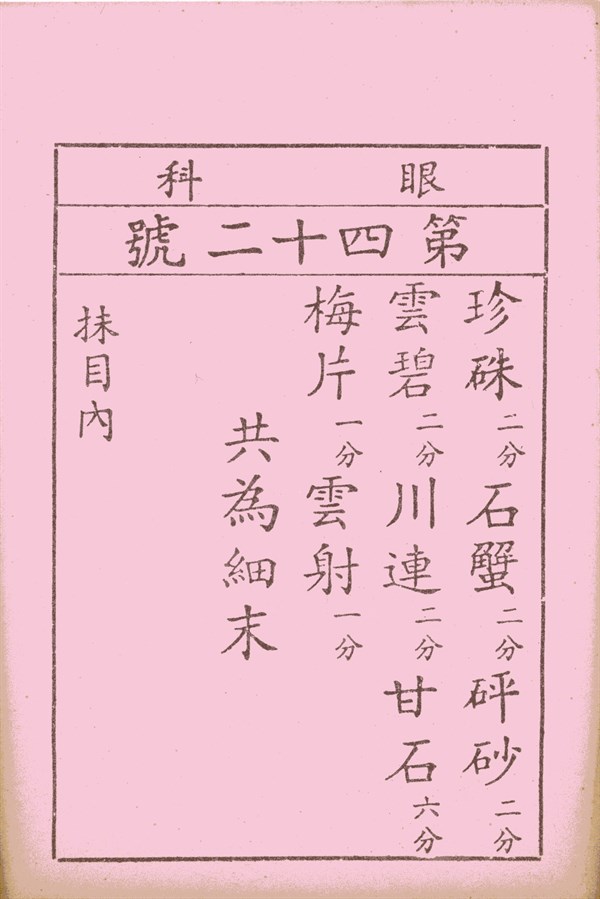 眼科
第四十二號
珍硃二分石蟹二分砰砂二分
雲碧二分川連二分甘石六分
梅片一分雲射一分
共為細末
抹目內